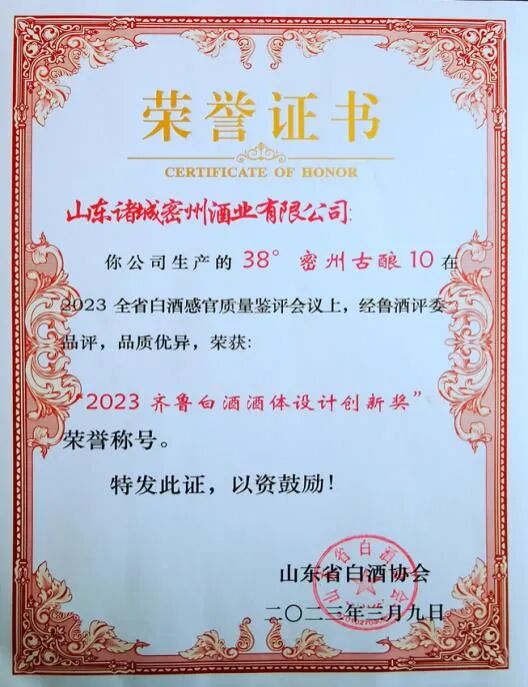 荣誉证书
CERTIFICATE OF HONOR
山东诸城密州酒业有限公司:
你公司生产的 38° 密州古酿 10 在
2023 全省白酒感官质量鉴评会议上，经鲁酒评委
品评，品质优异，荣获:
“2023 齐鲁白酒酒体设计创新奖”
荣誉称号。
特发此证，以资鼓励!
山东省白酒协会
二〇二三年三月九日